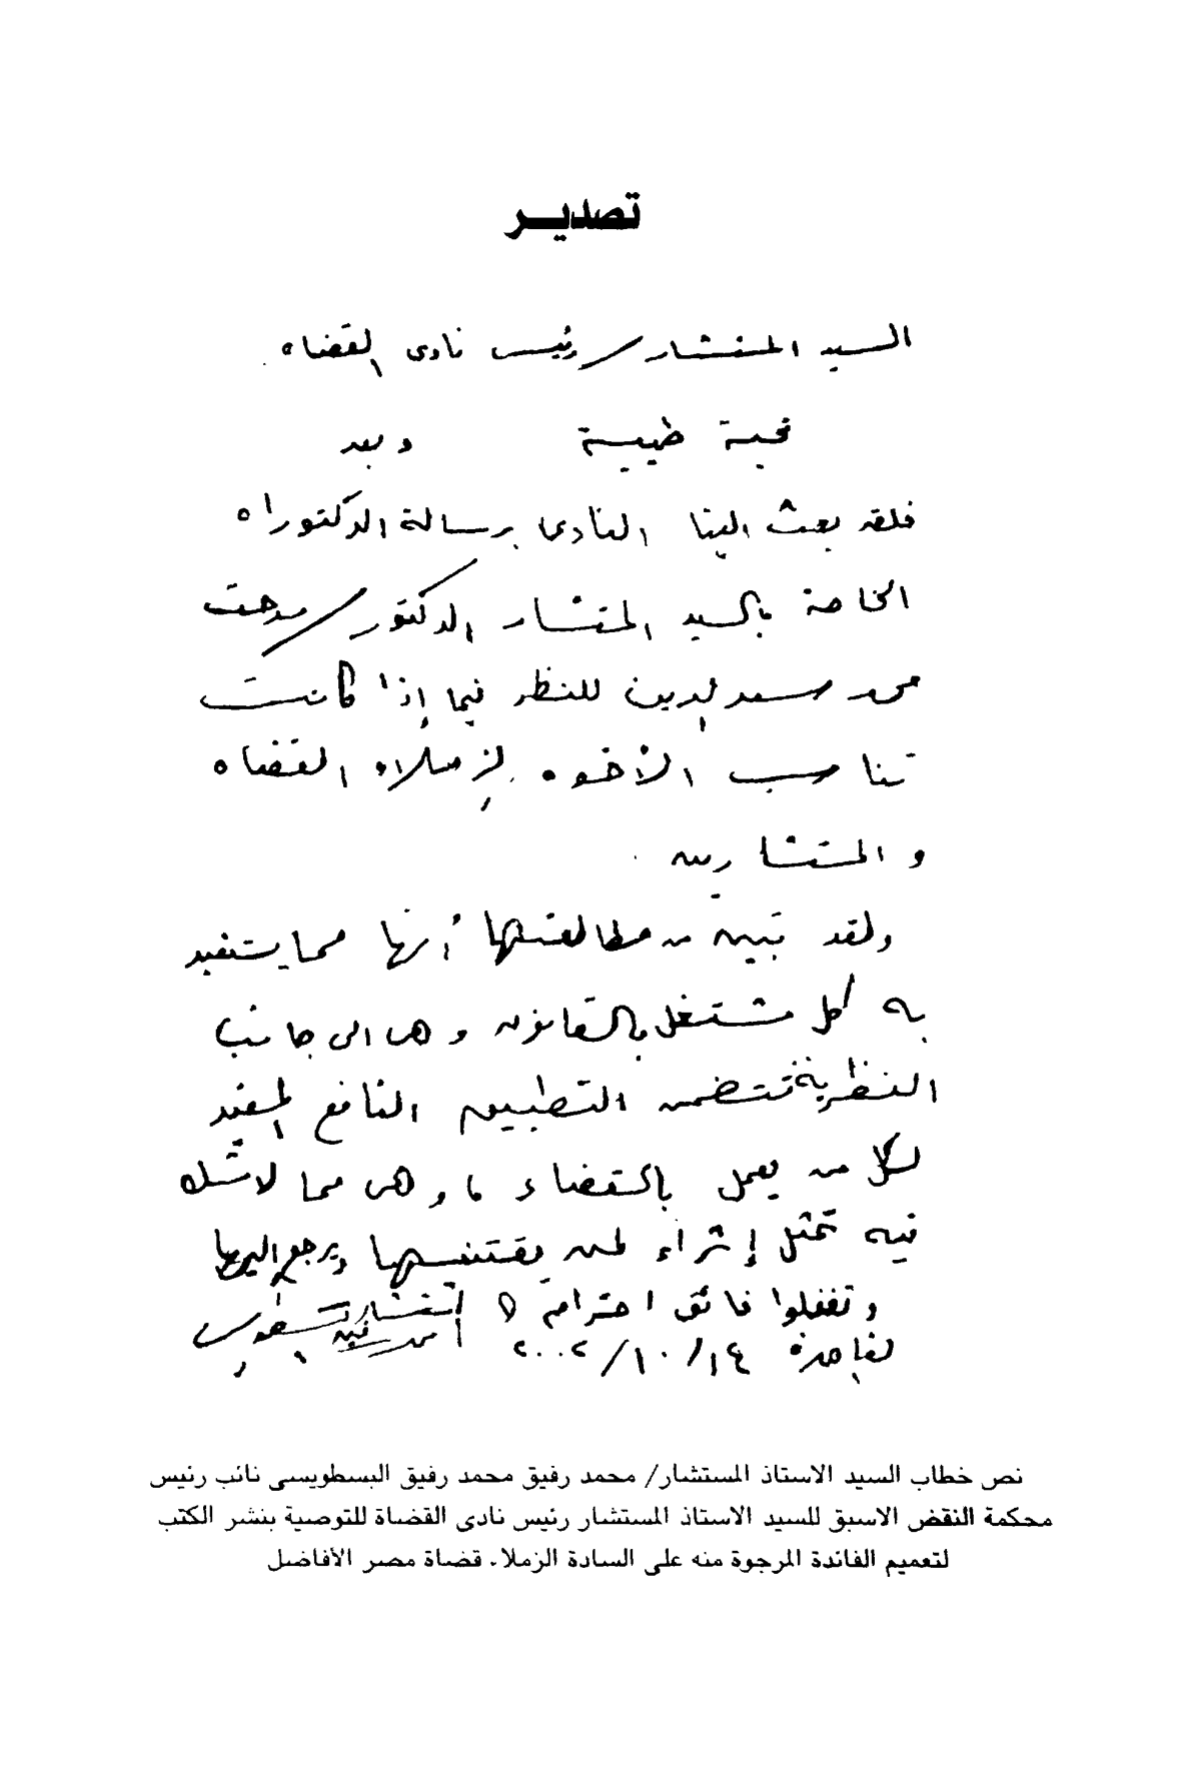 تصدير
السيد المستشار / رئيس نادى القضاه
تحية طيبية وبعد
فلقد بعث الينا النادى برسالة الدكتوراه
الخاصة بالسيد المستشار الدكتور / مدحت
محمد سعد الدين للنظر فيما إذا كانت
تناسب الأخوه لزملاء القضاه
والمستشارين .
ولقد تبين من مطالعتها أنها مما يستفيد
به كل مشتغل بالقانون وهى الى جانب
النظرية تتضمن التطبيق النافع المفيد
لكل من يعمل بالقضاء وهى مما لا شك
فيه تمثل إثراء لمن يقتنيها ويرجع إليها
وتفضلوا فائق احترامى المستشار
القاهرة ١٤/١٠/٢٠٠٢
نص خطاب السيد الاستاذ المستشار/ محمد رفيق محمد رفيق البسطويسى نائب رئيس
محكمة النقض الاسبق للسيد الاستاذ المستشار رئيس نادى القضاة للتوصية بنشر الكتب
لتعميم الفائدة المرجوة منه على السادة الزملا. قضاة مصر الأفاضل